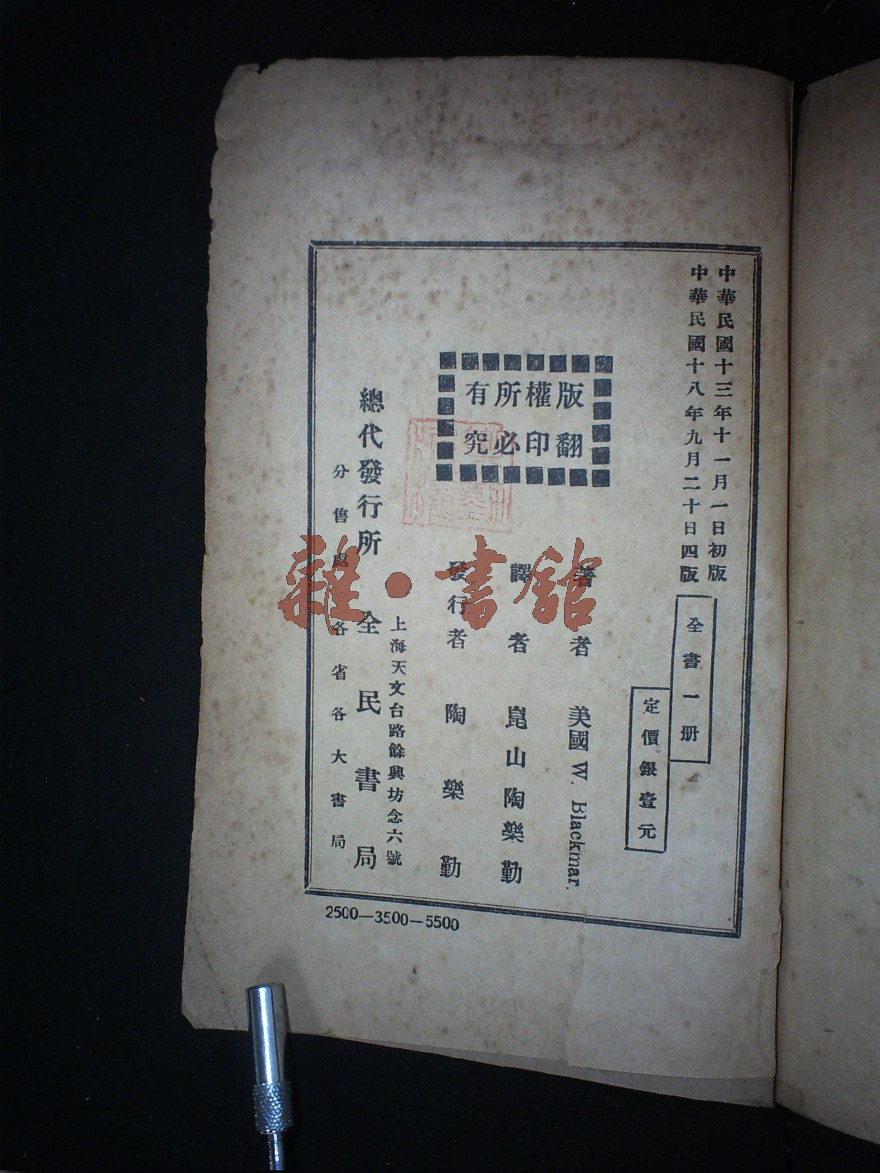 中華民國十三年十一月一日初版
中華民國十八年九月二十日四版
全書一册
定價銀壹元
版權所有
翻印必究
著者 美國 W. Blackmar.
譯者 崑山陶樂勤
發行者 陶樂勤
上海天文台路餘興坊念六號
總代發行所 全民書局
分售處 各省各大書局
2500—3500—5500
雜·書館